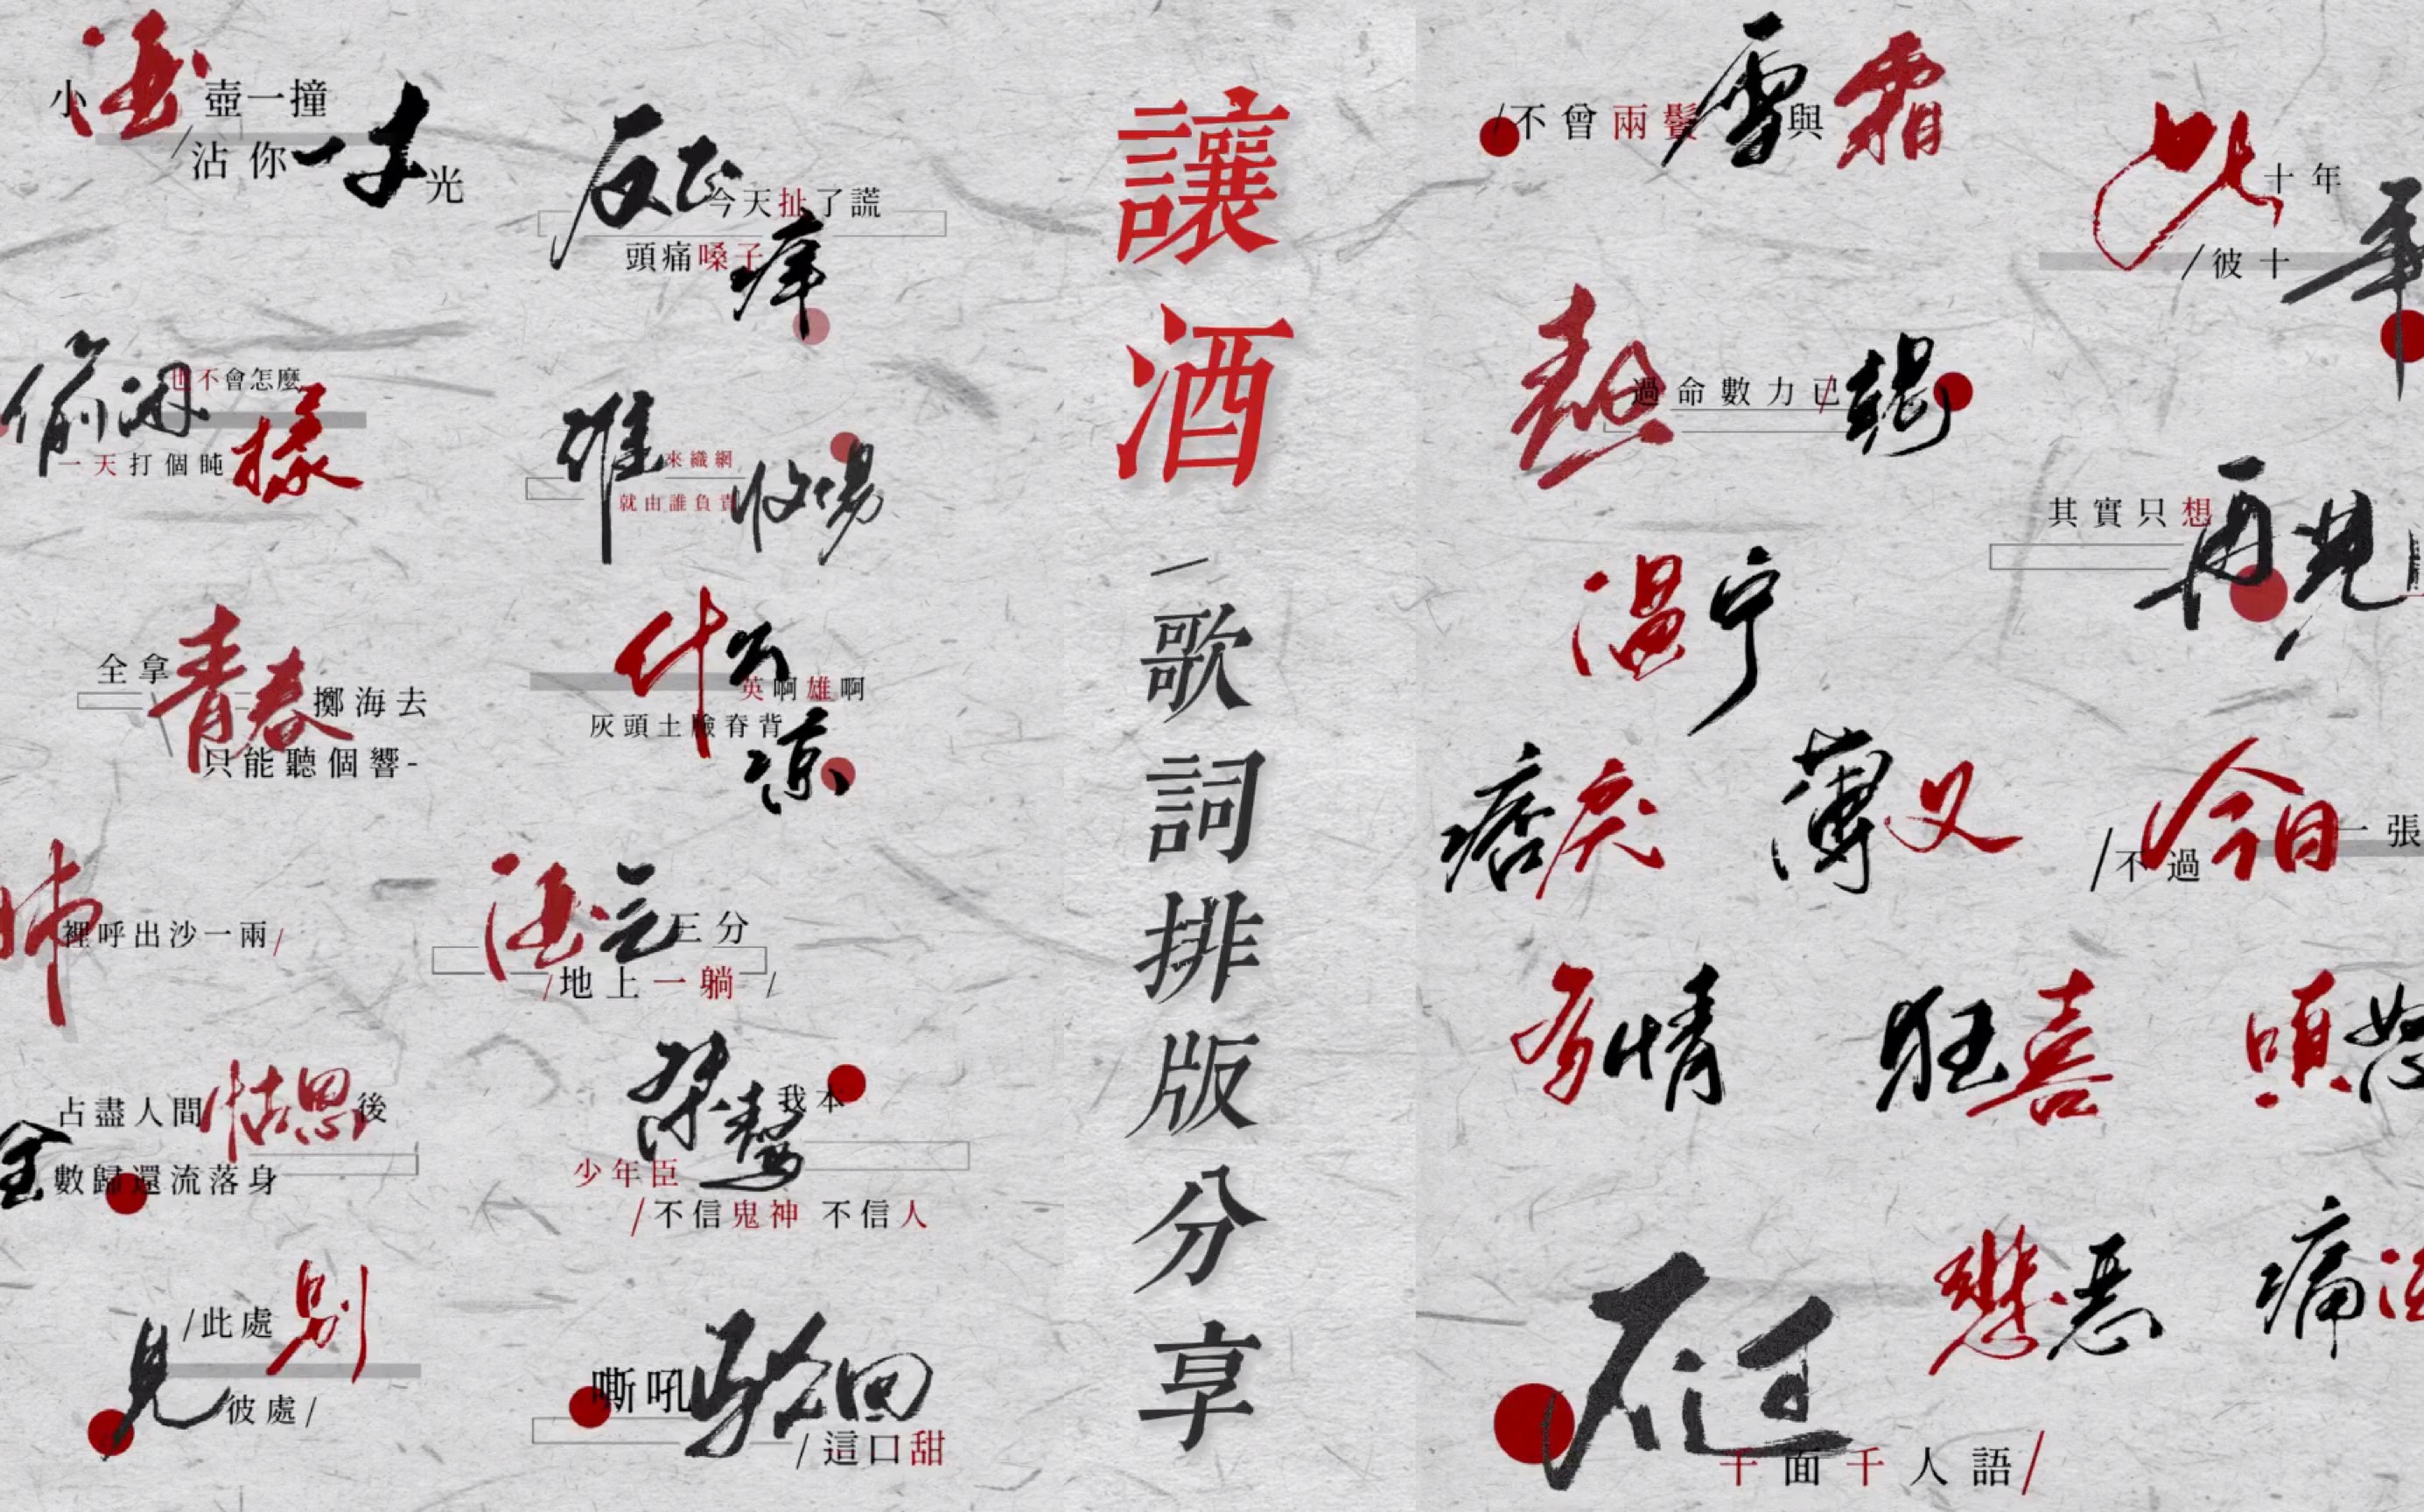 小酒壺一撞
/沾你一寸光
反正今天扯了謊
頭痛嗓子癢
偷閑也不會怎麼樣
一天打個盹
誰來織網
就由誰負責收場
全拿青春擲海去
只能聽個響-
什麼英啊雄啊
灰頭土臉脊背涼
肺裡呼出沙一兩/
酒言三分
/地上一躺/
占盡人間怙恩後
全數歸還流落身
桀驁我本
少年臣
/不信鬼神 不信人
/此處別
見彼處/
嘶吼驗回
/這口甜
讓酒
/歌詞排版分享
/不曾兩鬢雪與霜
此十年
/彼十年
熱過命數力已竭
其實只想再見
溫寧
痞戾
薄义
/不過今日一張
有情
狂喜
嗔怒
不过
千面千人語/
悲惡
痛